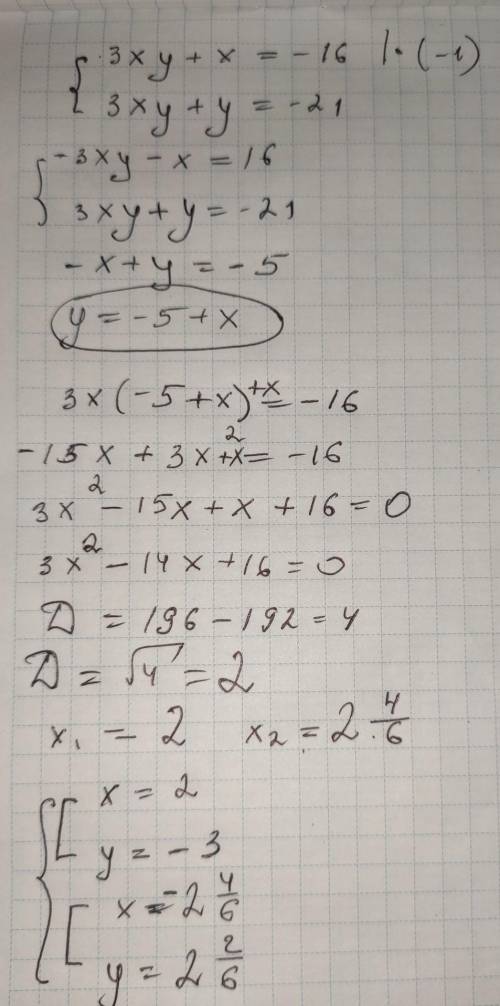 { 3xy + x = -16 | · (-1)
3xy + y = -21
{ -3xy - x = 16
3xy + y = -21
-x + y = -5
y = -5 + x
3x (-5 + x) + x = -16
-15x + 3x² + x = -16
3x² - 15x + x + 16 = 0
3x² - 14x + 16 = 0
D = 196 - 192 = 4
D = √4 = 2
x₁ = 2 x₂ = 2 4/6
{ [ x = 2
y = -3
[ x = -2 4/6
y = 2 2/6